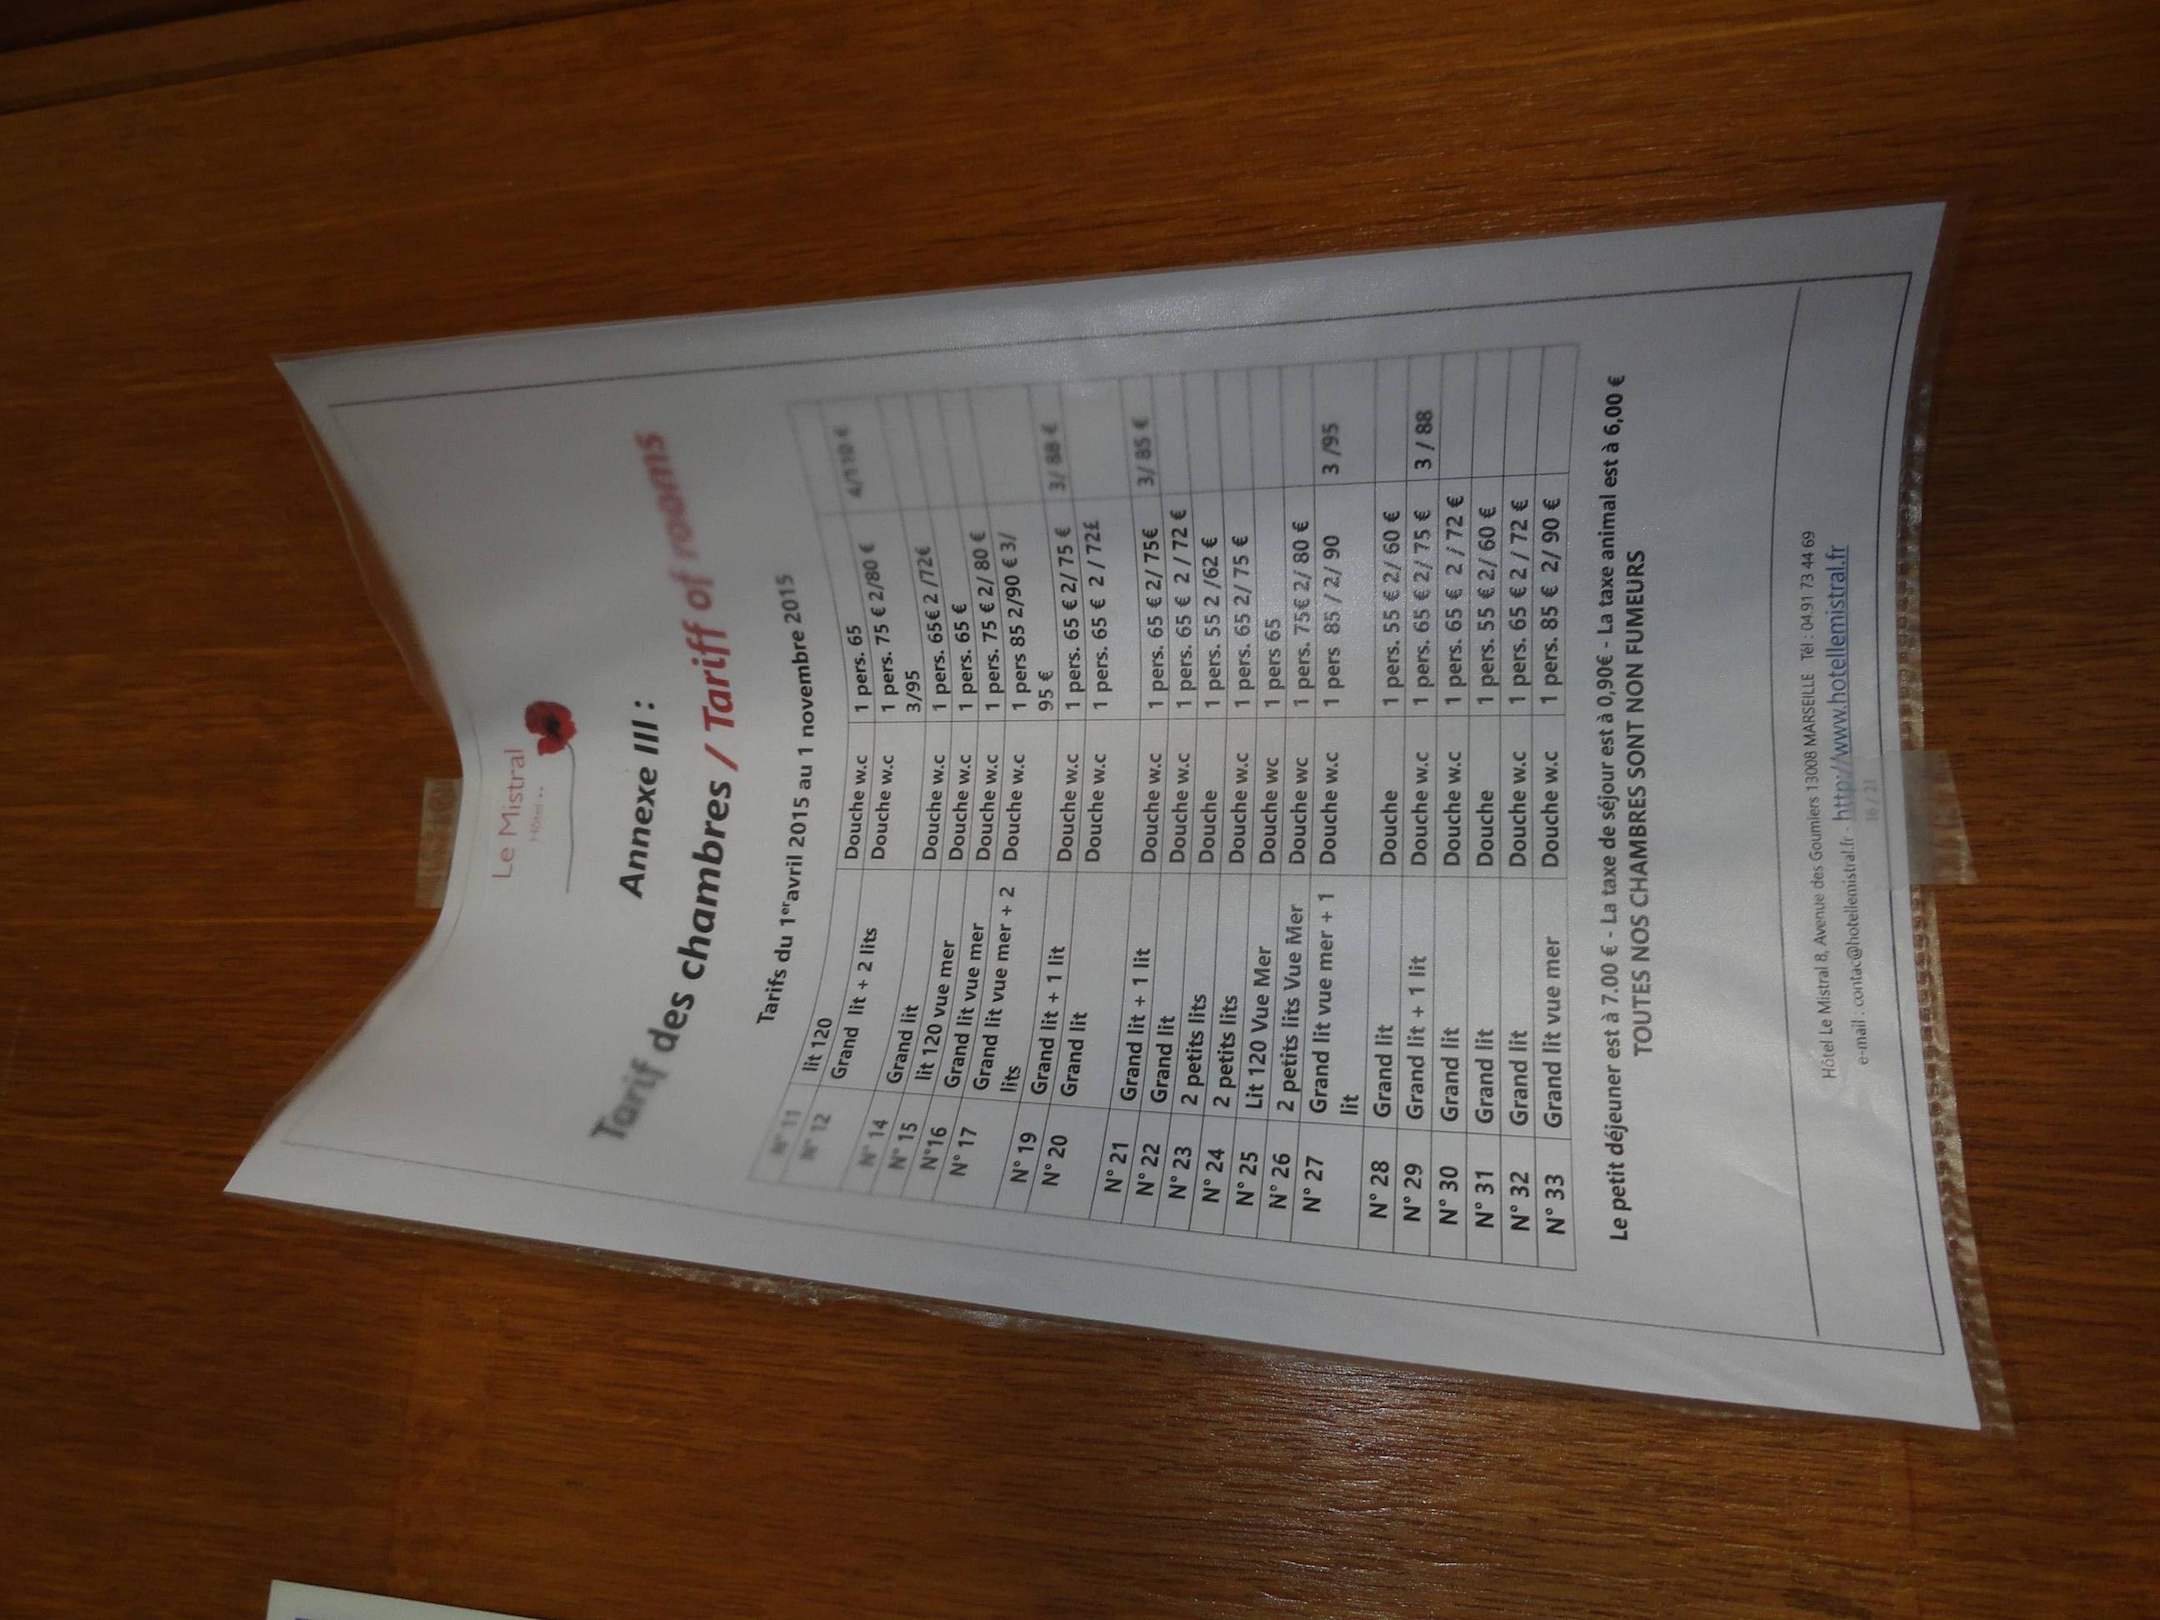 Le Mistral
Hôtel **
Annexe III :
Tarif des chambres / Tariff of rooms
Tarifs du 1er avril 2015 au 1 novembre 2015
N° 11 lit 120 Douche w.c 1 pers. 65
N° 12 Grand lit + 2 lits Douche w.c 1 pers. 75 € 2/80 € 4/110 €
3/95
N° 14 Grand lit Douche w.c 1 pers. 65€ 2 /72€
N° 15 lit 120 vue mer Douche w.c 1 pers. 65 €
N°16 Grand lit vue mer Douche w.c 1 pers. 75 € 2/ 80 €
N° 17 Grand lit vue mer + 2 Douche w.c 1 pers 85 2/90 € 3/
lits 95 €
N° 19 Grand lit + 1 lit Douche w.c 1 pers. 65 € 2/ 75 € 3/ 88 €
N° 20 Grand lit Douche w.c 1 pers. 65 € 2 / 72£
N° 21 Grand lit + 1 lit Douche w.c 1 pers. 65 € 2/ 75€ 3/ 85 €
N° 22 Grand lit Douche w.c 1 pers. 65 € 2 / 72 €
N° 23 2 petits lits Douche 1 pers. 55 2 /62 €
N° 24 2 petits lits Douche w.c 1 pers. 65 2/ 75 €
N° 25 Lit 120 Vue Mer Douche wc 1 pers 65
N° 26 2 petits lits Vue Mer Douche wc 1 pers. 75€ 2/ 80 €
N° 27 Grand lit vue mer + 1 Douche w.c 1 pers 85 / 2/ 90 3 /95
lit
N° 28 Grand lit Douche 1 pers. 55 € 2/ 60 €
N° 29 Grand lit + 1 lit Douche w.c 1 pers. 65 € 2/ 75 € 3 / 88
N° 30 Grand lit Douche w.c 1 pers. 65 € 2 / 72 €
N° 31 Grand lit Douche 1 pers. 55 € 2/ 60 €
N° 32 Grand lit Douche w.c 1 pers. 65 € 2 / 72 €
N° 33 Grand lit vue mer Douche w.c 1 pers. 85 € 2/ 90 €
Le petit déjeuner est à 7.00 € - La taxe de séjour est à 0,90€ - La taxe animal est à 6,00 €
TOUTES NOS CHAMBRES SONT NON FUMEURS
Hôtel Le Mistral 8, Avenue des Goumiers 13008 MARSEILLE Tél : 04 91 73 44 69
e-mail : contac@hotellemistral.fr - http://www.hotellemistral.fr
16 / 21